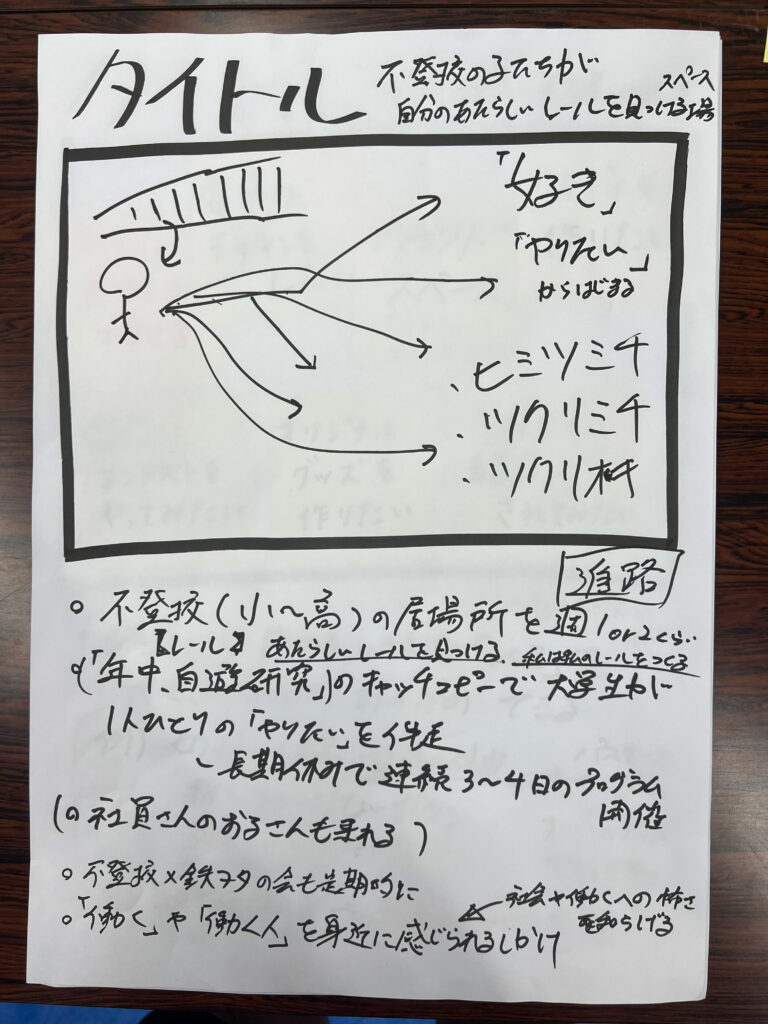 タイトル
不登校の子たちが
自分のあたらしいレールを見つける場
スペース
「好き」
「やりたい」
からはじまる
・ヒミツミチ
・ツクリミチ
・ツクリ村
進路
○ 不登校(小〜高)の居場所を週1or2くらい
【レール】 あたらしいレールを見つける、私は私のレールをつくる
「年中、自遊研究」のキャッチコピーで 大学生が
1人ひとりの「やりたい」を伴走
長期休みで連続3〜4日のプログラム
開催
(○ 社員さんのお子さんも来れる)
○ 不登校×鉄ヲタの会も定期的に
○「働く」や「働く人」を身近に感じられるしかけ
社会や働くへの怖さ
を和らげる